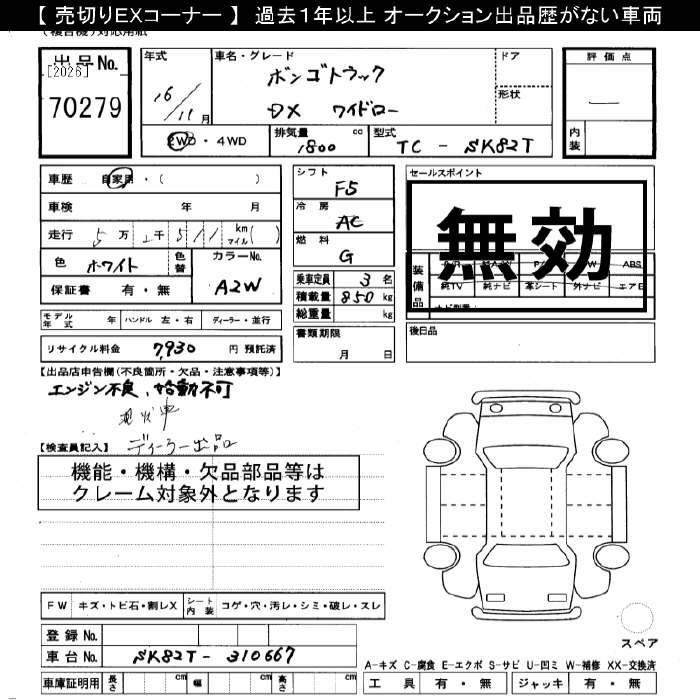 【 売切りEXコーナー 】 過去1年以上 オークション出品歴がない車両
(複合機)対応用紙
出品No. [2026] 70279
年式 16/11月
車名・グレード ボンゴトラック
DX ワイドロー
ドア
形状
評価点 —
内装
2WD・4WD
排気量 1800 cc
型式 TC - SK82T
車歴 自家用・( )
車検 年 月
走行 5万2千511 km マイル( )
色 ホワイト 色替
カラーNo. A2W
保証書 有・無
シフト F5
冷房 AC
燃料 G
乗車定員 3 名
積載量 850 kg
総重量 kg
書類期限
月 日
セールスポイント
無効
装備品
ABS
純TV 純ナビ 革シート 外ナビ エアB
後日品
モデル年式 年 ハンドル 左・右 ディーラー・並行
リサイクル料金 7,930 円 預託済
【出品店申告欄(不良箇所・欠品・注意事項等)】
エンジン不良、始動不可
現状車
ディーラー出品
【検査員記入】
機能・機構・欠品部品等は
クレーム対象外となります
FW キズ・トビ石・割レX シート内装 コゲ・穴・汚レ・シミ・破レ・スレ
登録No.
車台No. SK82T- 310667
車庫証明用 長さ cm 幅 cm 高さ cm
スペア
A-キズ C-腐食 E-エクボ S-サビ U-凹ミ W-補修 XX-交換済
工具 有・無 ジャッキ 有・無